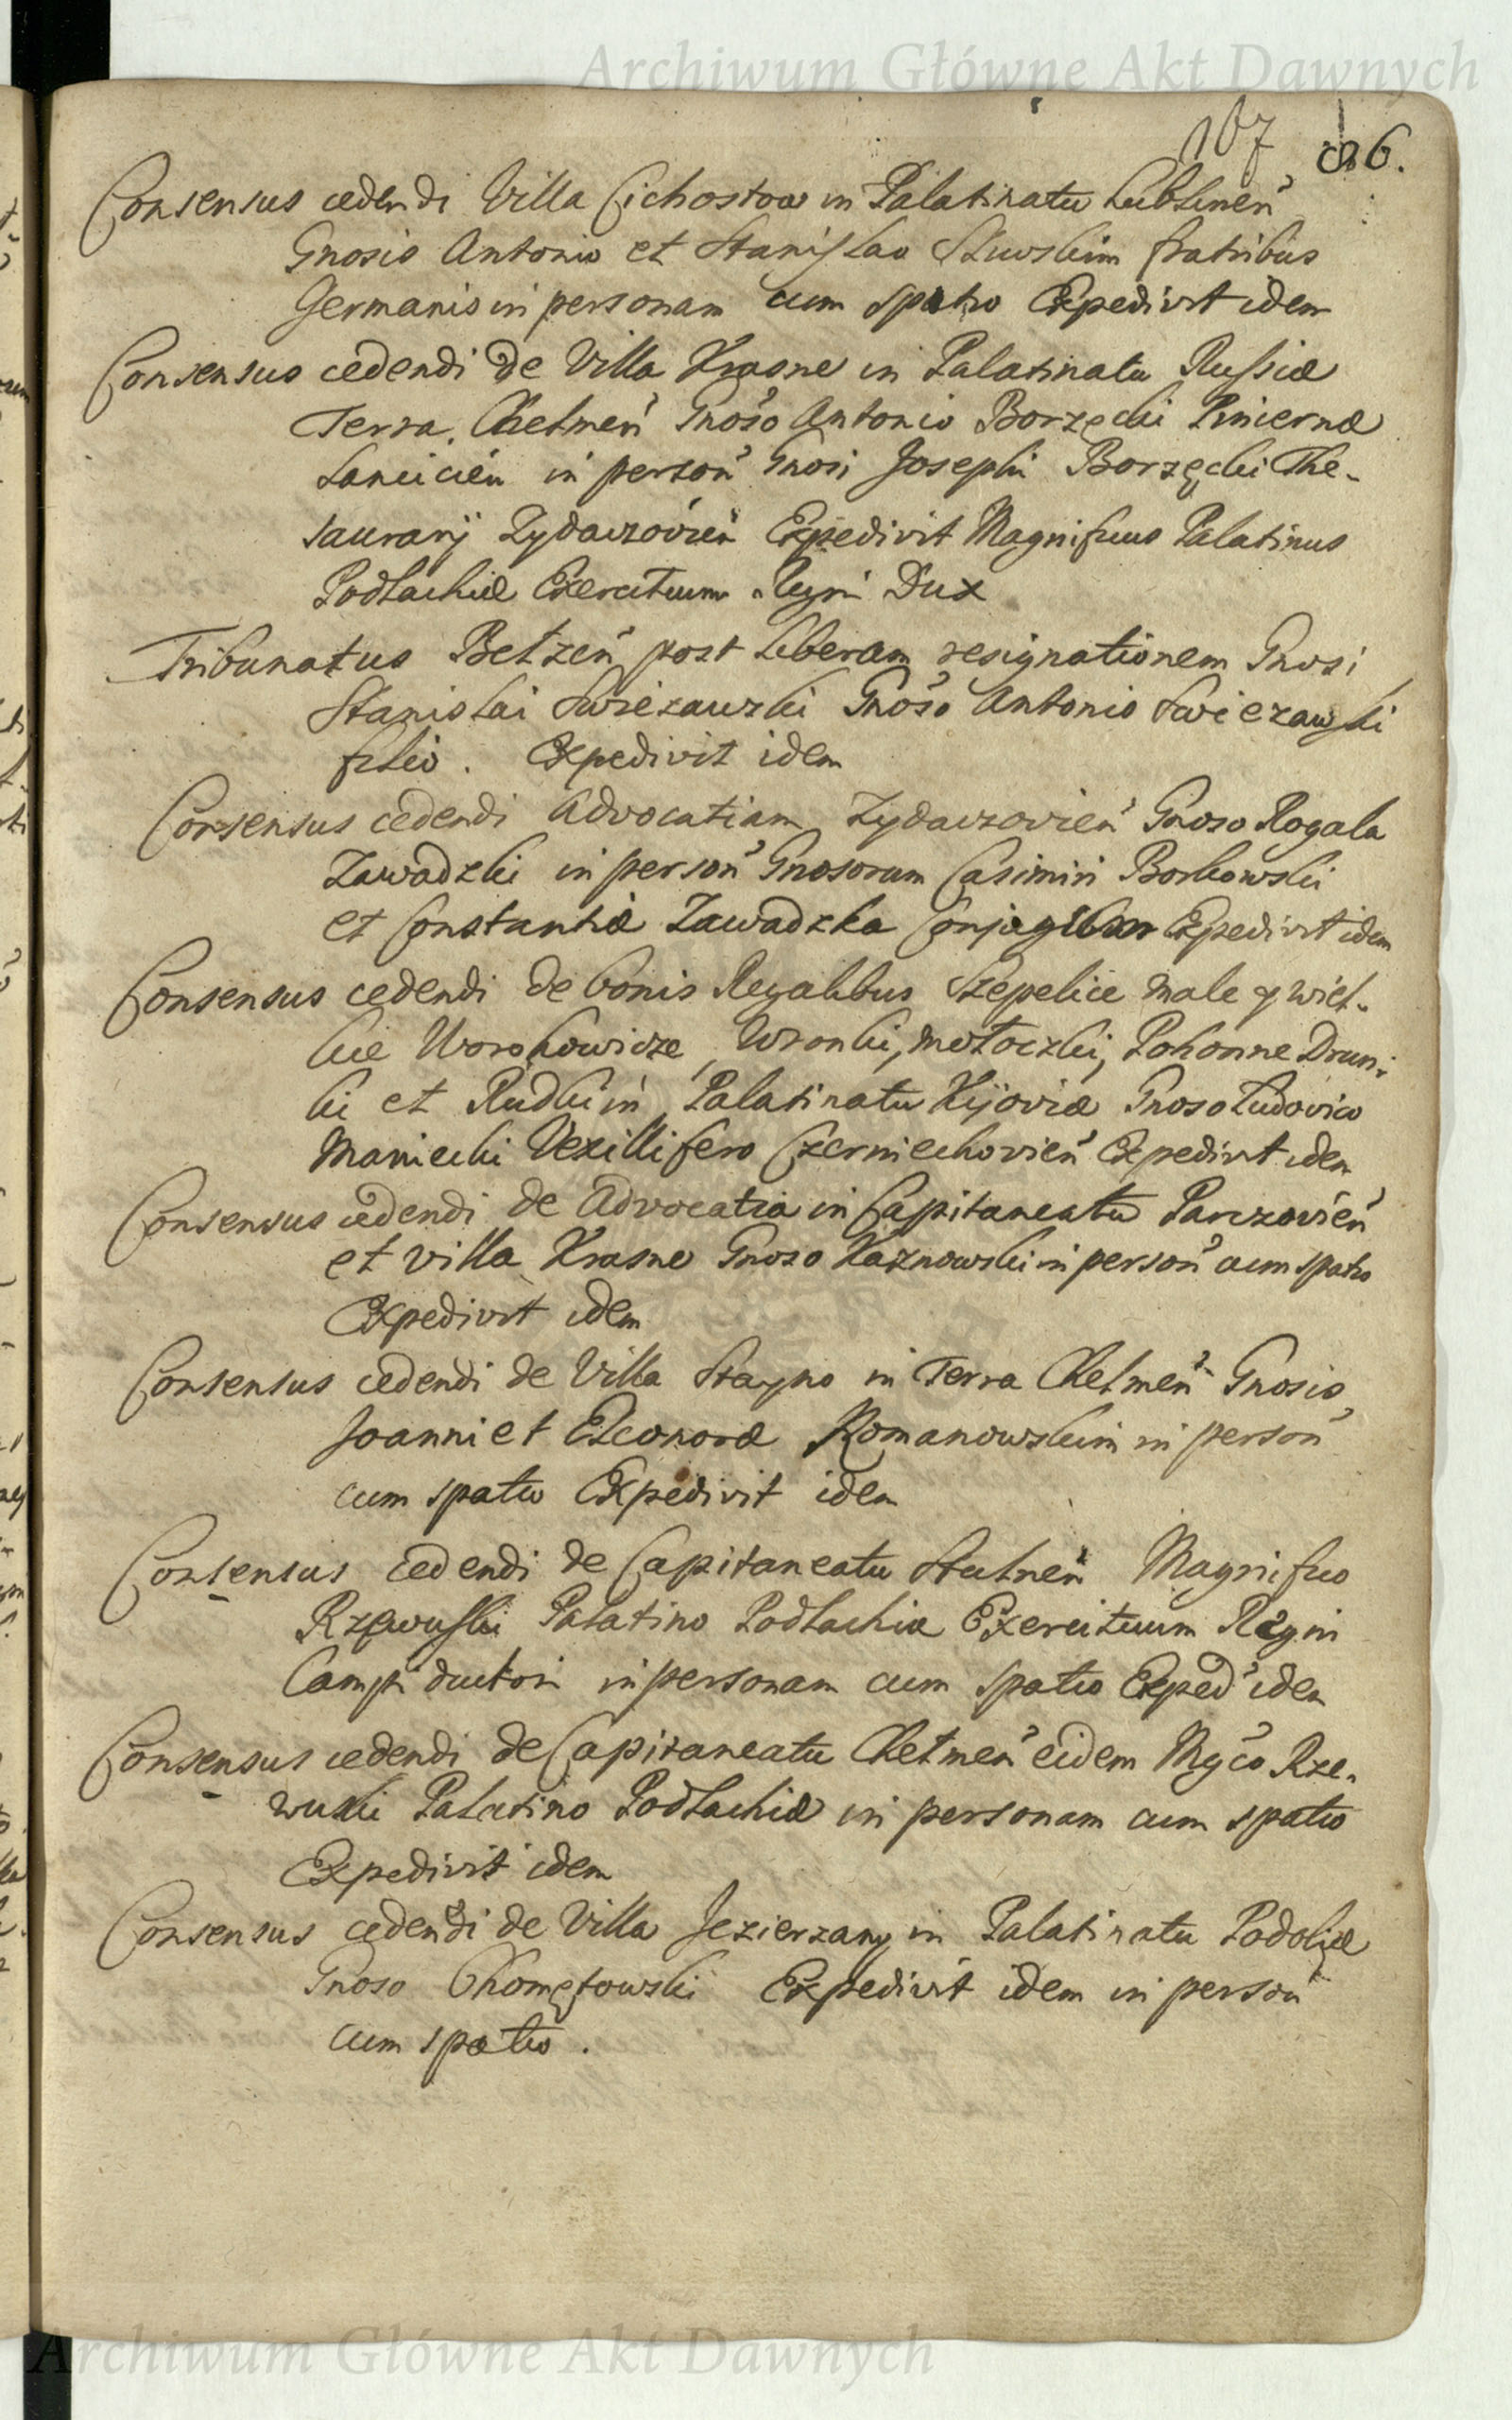 Archiwum Główne Akt Dawnych
107 86.
Consensus cedendi Villa Cichostow in Palatinatu Lublinen̄
Gnosis Antonio et Stanislao fratribus
Germanis in personam cum spatio Expedivit idem
Consensus cedendi de Villa Krasne in Palatinatu Russiæ
Terra Chelmen̄ Gnoso Antonio Borzęcki Pincernæ
in person̄ Gnosi Josephi Borzęcki The-
saurarij Zydaczovien̄ Expedivit Magnificus Palatinus
Podlachiæ Exercituum Regni Dux
Tribunatus Belzen̄ post liberam resignationem Gnosi
Stanislai Swiezawski Gnoso Antonio Swiezawski
filio. Expedivit idem
Consensus cedendi Advocatiam Zydaczovien̄ Gnoso Rogala
Zawadzki in person̄ Gnosorum Casimiri Borkowski
et Constantiæ Zawadzka Conjugum Expedivit idem
Consensus cedendi de bonis Regalibus Szepelice male y wiel-
kie Worohowicze, Wronki, Motoczki, Pohonne Drun-
ki et Rudki in Palatinatu Kijoviæ Gnoso Ludovico
Maniecki Vexillifero Czerniechovien̄ Expedivit idem
Consensus cedendi de Advocatia in Capitaneatu Parczovien̄
et villa Krasne Gnoso Kaznowski in person̄ cum spatio
Expedivit idem
Consensus cedendi de Villa Stayno in Terra Chelmen̄ Gnosis
Joanni et Eleonoræ Romanowskim in person̄
cum spatio Expedivit idem
Consensus cedendi de Capitaneatu Magnifico
Rzewuski Palatino Podlachiæ Exercituum Regni
Campi ductori in personam cum spatio Exped̄ idem
Consensus cedendi de Capitaneatu Chelmen̄ eidem Mgco Rze-
wuski Palatino Podlachiæ in personam cum spatio
Expedivit idem
Consensus cedendi de Villa Jezierzany in Palatinatu Podoliæ
Gnoso Chomętowski Expedivit idem in person̄
cum spatio.
Archiwum Główne Akt Dawnych